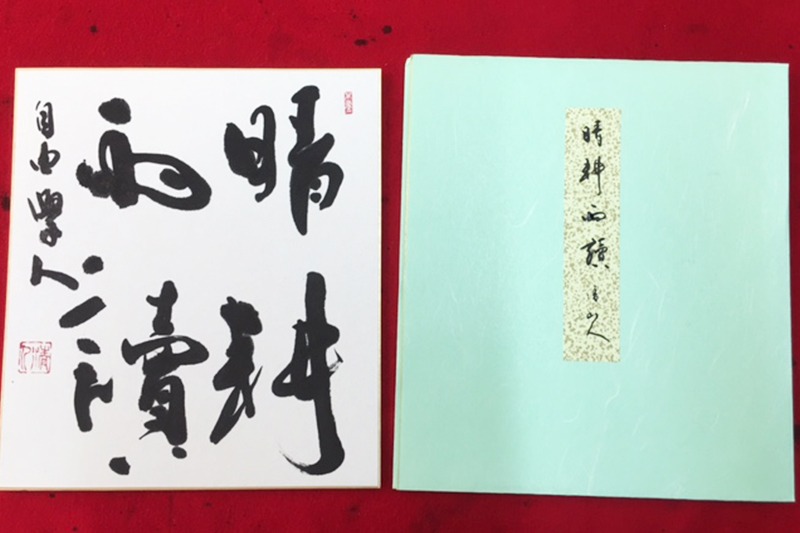 晴耕
雨讀
自由學人
晴耕雨讀